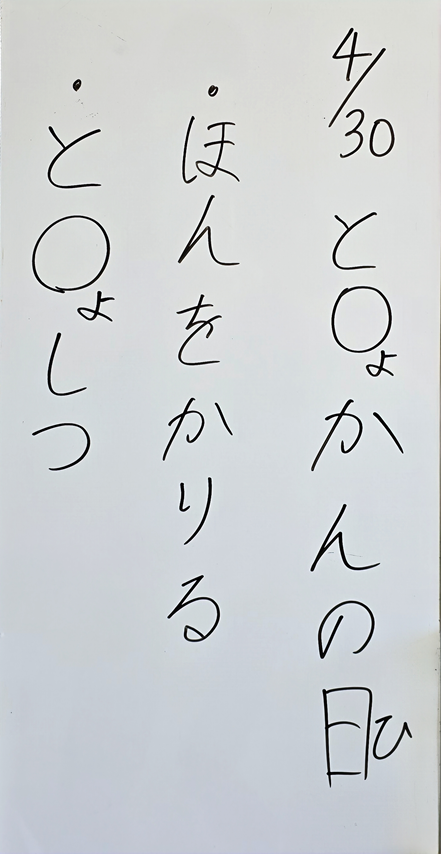 4/30 と〇ょかんの日ひ
・ほんをかりる
・と〇ょしつ